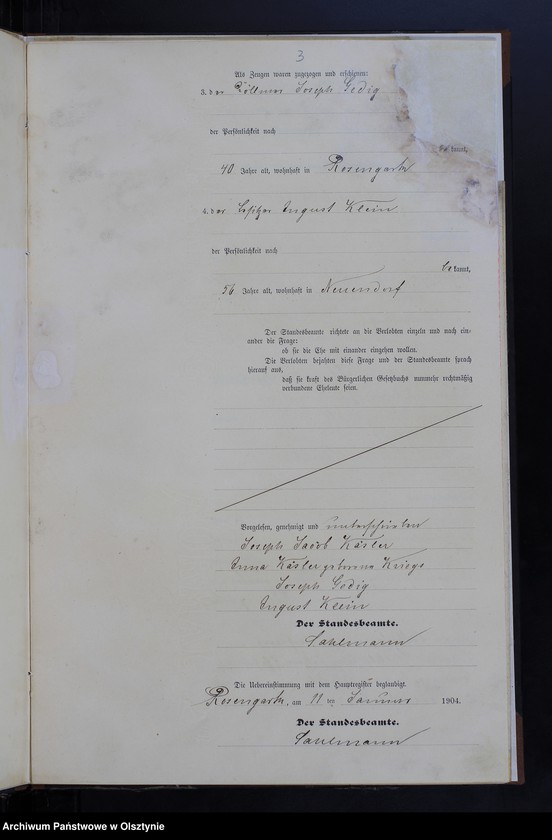 3
Als Zeugen waren zugezogen und erschienen:
3. der Köllmer Joseph Gedig
der Persönlichkeit nach
be kannt,
40 Jahre alt, wohnhaft in Rosengarth
4. der Besitzer August Klein
der Persönlichkeit nach
be kannt,
56 Jahre alt, wohnhaft in Neuendorf
Der Standesbeamte richtete an die Verlobten einzeln und nach ein-
ander die Frage:
ob sie die Ehe mit einander eingehen wollen.
Die Verlobten bejahten diese Frage und der Standesbeamte sprach
hierauf aus,
daß sie kraft des Bürgerlichen Gesetzbuchs nunmehr rechtmäßig
verbundene Eheleute seien.
Vorgelesen, genehmigt und unterschrieben
Joseph Jacob Käsler
Anna Käsler geborene Kriegs
Joseph Gedig
August Klein
Der Standesbeamte.
Sahlmann
Die Uebereinstimmung mit dem Hauptregister beglaubigt.
Rosengarth, am 11 ten Januar 1904.
Der Standesbeamte.
Sahlmann
Archiwum Państwowe w Olsztynie